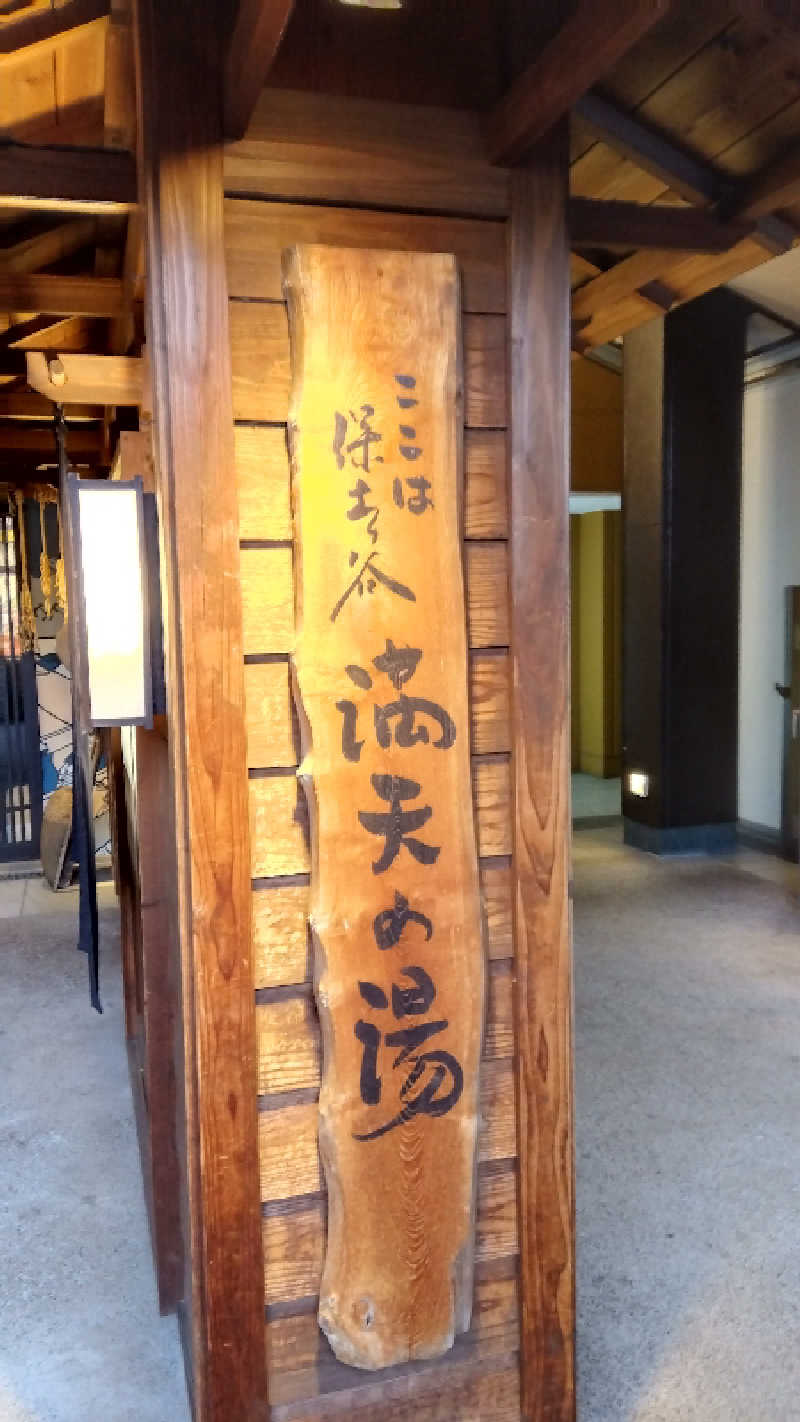 ここは
保土ケ谷
満天の湯